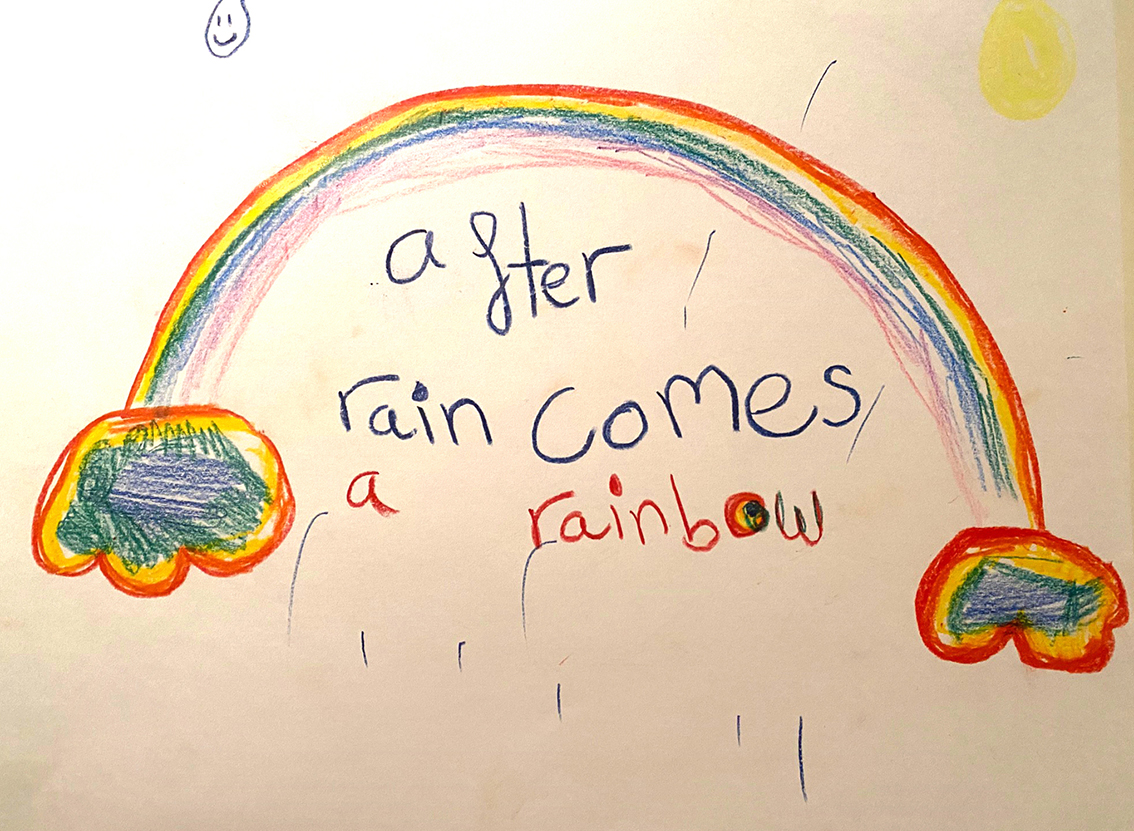 after
rain comes
a rainbow